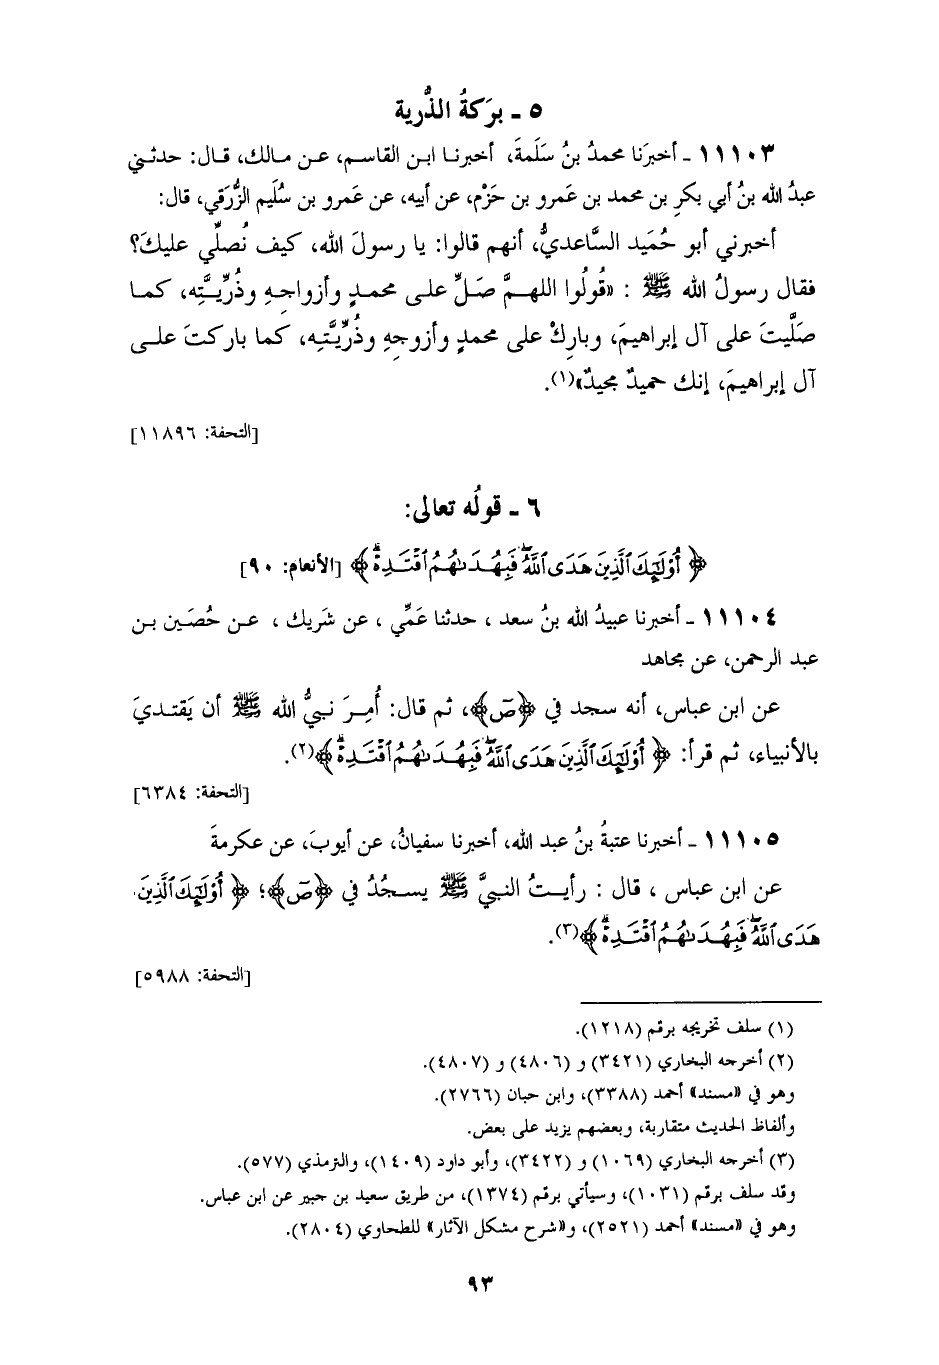 ٥ ـ بركةُ الذُّرية
١١١٠٣ ـ أخبرَنا محمدُ بنُ سَلَمةَ، أخبرنا ابن القاسم، عن مالك، قال: حدثني
عبدُ الله بنُ أبي بكرِ بن محمد بن عَمرو بن حَزْم، عن أبيه، عن عَمرو بن سُلَيم الزُّرَقي، قال:
أخبرني أبو حُمَيد السَّاعديُّ، أنهم قالوا: يا رسولَ الله، كيف نُصلِّي عليكَ؟
فقال رسولُ الله ﷺ : «قُولُوا اللهمَّ صَلِّ على محمدٍ وأزواجِهِ وذُرِّيَّتِه، كما
صَلَّيتَ على آل إبراهيمَ، وبارِكْ على محمدٍ وأزوجِهِ وذُرِّيَّتِه، كما باركتَ على
آل إبراهيمَ، إنك حميدٌ مجيدٌ»(١).
[التحفة: ١١٨٩٦]
٦ ـ قولُه تعالى:
﴿ أُوْلَٰٓئِكَ ٱلَّذِينَ هَدَى ٱللَّهُۖ فَبِهُدَىٰهُمُ ٱقْتَدِهْۗ ﴾ [الأنعام: ٩٠]
١١١٠٤ ـ أخبرنا عبيدُ الله بنُ سعد ، حدثنا عَمِّي ، عن شَريك ، عن حُصَين بن
عبد الرحمن، عن مجاهد
عن ابن عباس، أنه سجد في ﴿صٓ﴾، ثم قال: أُمِرَ نبيُّ الله ﷺ أن يَقتديَ
بالأنبياء، ثم قرأ: ﴿ أُوْلَٰٓئِكَ ٱلَّذِينَ هَدَى ٱللَّهُۖ فَبِهُدَىٰهُمُ ٱقْتَدِهْۗ ﴾(٢).
[التحفة: ٦٣٨٤]
١١١٠٥ ـ أخبرنا عتبةُ بنُ عبد الله، أخبرنا سفيانُ، عن أيوبَ، عن عكرمةَ
عن ابن عباس ، قال : رأيتُ النبيَّ ﷺ يسجُدُ في ﴿صٓ﴾؛ ﴿ أُوْلَٰٓئِكَ ٱلَّذِينَ
هَدَى ٱللَّهُۖ فَبِهُدَىٰهُمُ ٱقْتَدِهْۗ ﴾(٣).
[التحفة: ٥٩٨٨]
(١) سلف تخريجه برقم (١٢١٨).
(٢) أخرجه البخاري (٣٤٢١) و (٤٨٠٦) و (٤٨٠٧).
وهو في «مسند» أحمد (٣٣٨٨)، وابن حبان (٢٧٦٦).
وألفاظ الحديث متقاربة، وبعضهم يزيد على بعض.
(٣) أخرجه البخاري (١٠٦٩) و (٣٤٢٢)، وأبو داود (١٤٠٩)، والترمذي (٥٧٧).
وقد سلف برقم (١٠٣١)، وسيأتي برقم (١٣٧٤)، من طريق سعيد بن جبير عن ابن عباس.
وهو في «مسند» أحمد (٢٥٢١)، و«شرح مشكل الآثار» للطحاوي (٢٨٠٤).
٩٣